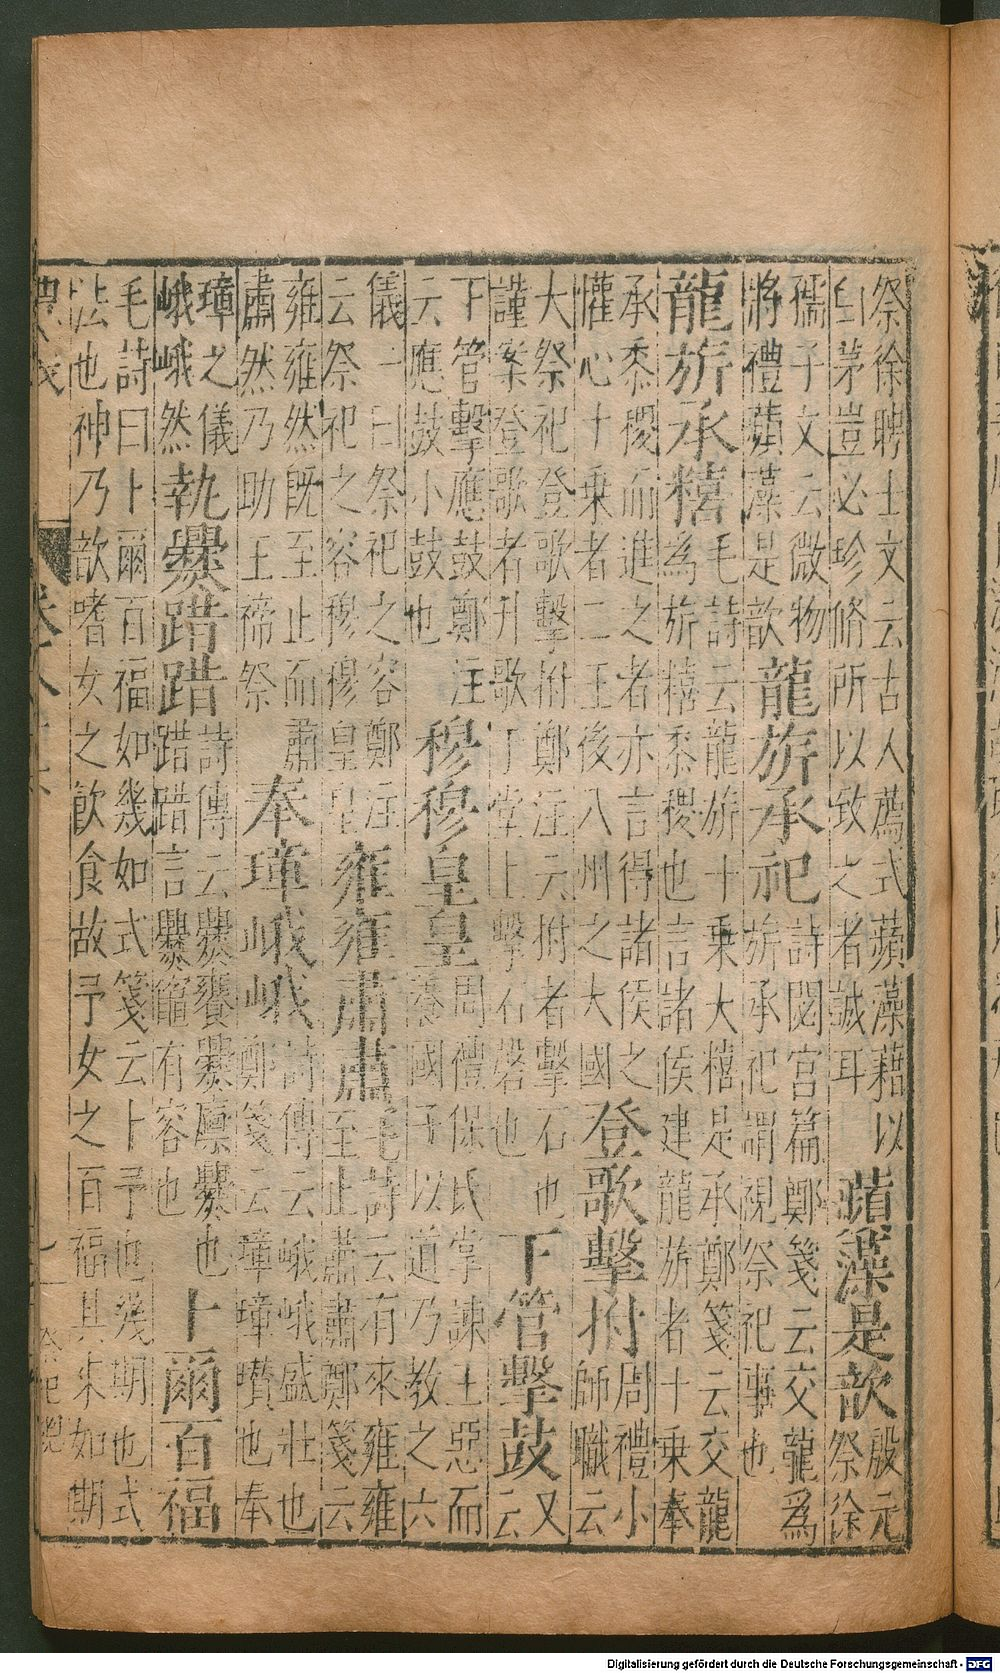 祭徐聘士文云古人薦式蘋藻藉以
白茅豈必珍脩所以致之者誠耳
蘋藻是歆
殷元
祭徐
孺子文云微物
將禮蘋藻是歆
龍旂承祀
詩閟宮篇鄭箋云交龍為
旂承祀謂視祭祀事也
龍旂承糦
毛詩云龍旂十乗大糦是承鄭箋云交龍
為旂糦黍稷也言諸侯建龍旂者十乗奉
承黍稷而進之者亦言得諸侯之
懽心十乗者二王後八州之大國
登歌擊拊
周禮小
師職云
大祭祀登歌擊拊鄭注云拊者擊石也
謹案登歌者升歌于堂上擊石磬也
下管擊鼓
又
云
下管擊應鼓鄭注
云應鼓小鼓也
穆穆皇皇
周禮保氏掌諫王惡而
養國子以道乃教之六
儀一曰祭祀之容鄭注
云祭祀之容穆穆皇皇
雍雍肅肅
毛詩云有來雍雍
至止肅肅鄭箋云
雍雍然旣至止而肅
肅然乃助王禘祭
奉璋峨峨
詩傳云峨峨盛壯也
鄭箋云璋璋瓚也奉
璋之儀
峨峨然
執爨踖踖
詩傳云爨饔爨廪爨也
踖踖言爨竈有容也
卜爾百福
毛詩曰卜爾百福如幾如式箋云卜予也幾期也式
法也神乃歆嗜女之飲食故予女之百福其來如期
卷八
祭祀總